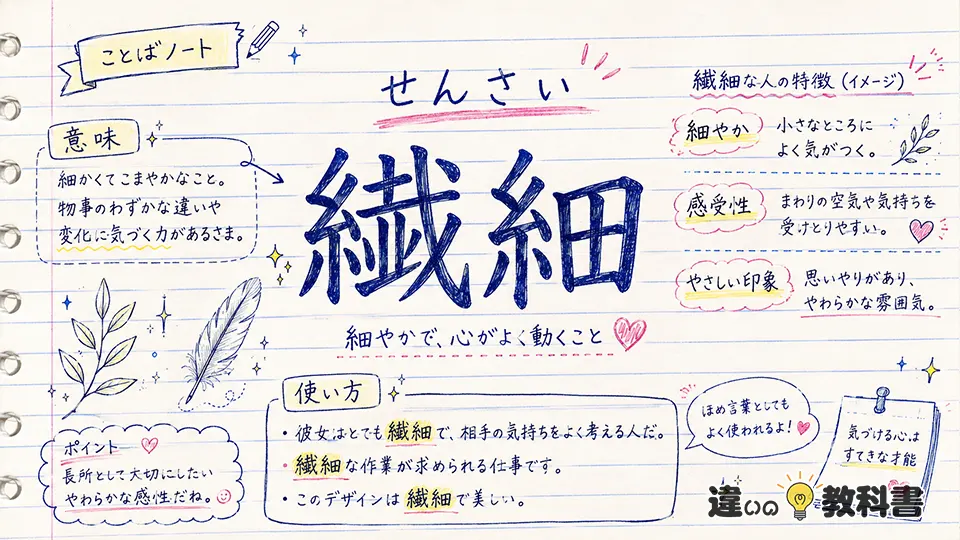 ことばノート
せんさい
繊細
細やかで、心がよく動くこと
意味
細かくてこまやかなこと。
物事のわずかな違いや
変化に気づく力があるさま。
繊細な人の特徴（イメージ）
細やか
小さなところに
よく気がつく。
感受性
まわりの空気や気持ちを
受けとりやすい。
やさしい印象
思いやりがあり、
やわらかな雰囲気。
ポイント
長所として大切にしたい
やわらかな感性だね。
使い方
・彼女はとても繊細で、相手の気持ちをよく考える人だ。
・繊細な作業が求められる仕事です。
・このデザインは繊細で美しい。
ほめ言葉としても
よく使われるよ！
気づける心は
すてきな才能
違いの教科書